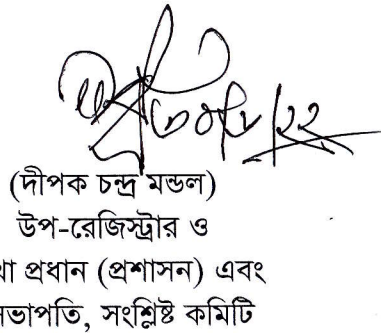 (দীপক চন্দ্র মন্ডল)
উপ-রেজিস্ট্রার ও
প্রধান (প্রশাসন) এবং
সংশ্লিষ্ট কমিটি